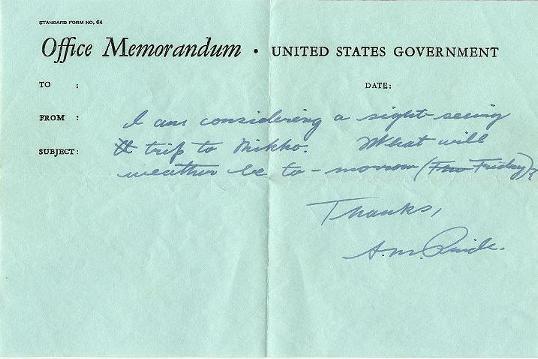 STANDARD FORM NO. 64
Office Memorandum • UNITED STATES GOVERNMENT
TO :
DATE:
FROM :
SUBJECT :
I am considering a sight-seeing
trip to Nikko. What will
weather be to-morrow (Friday)?
Thanks,
A.M. Pride.